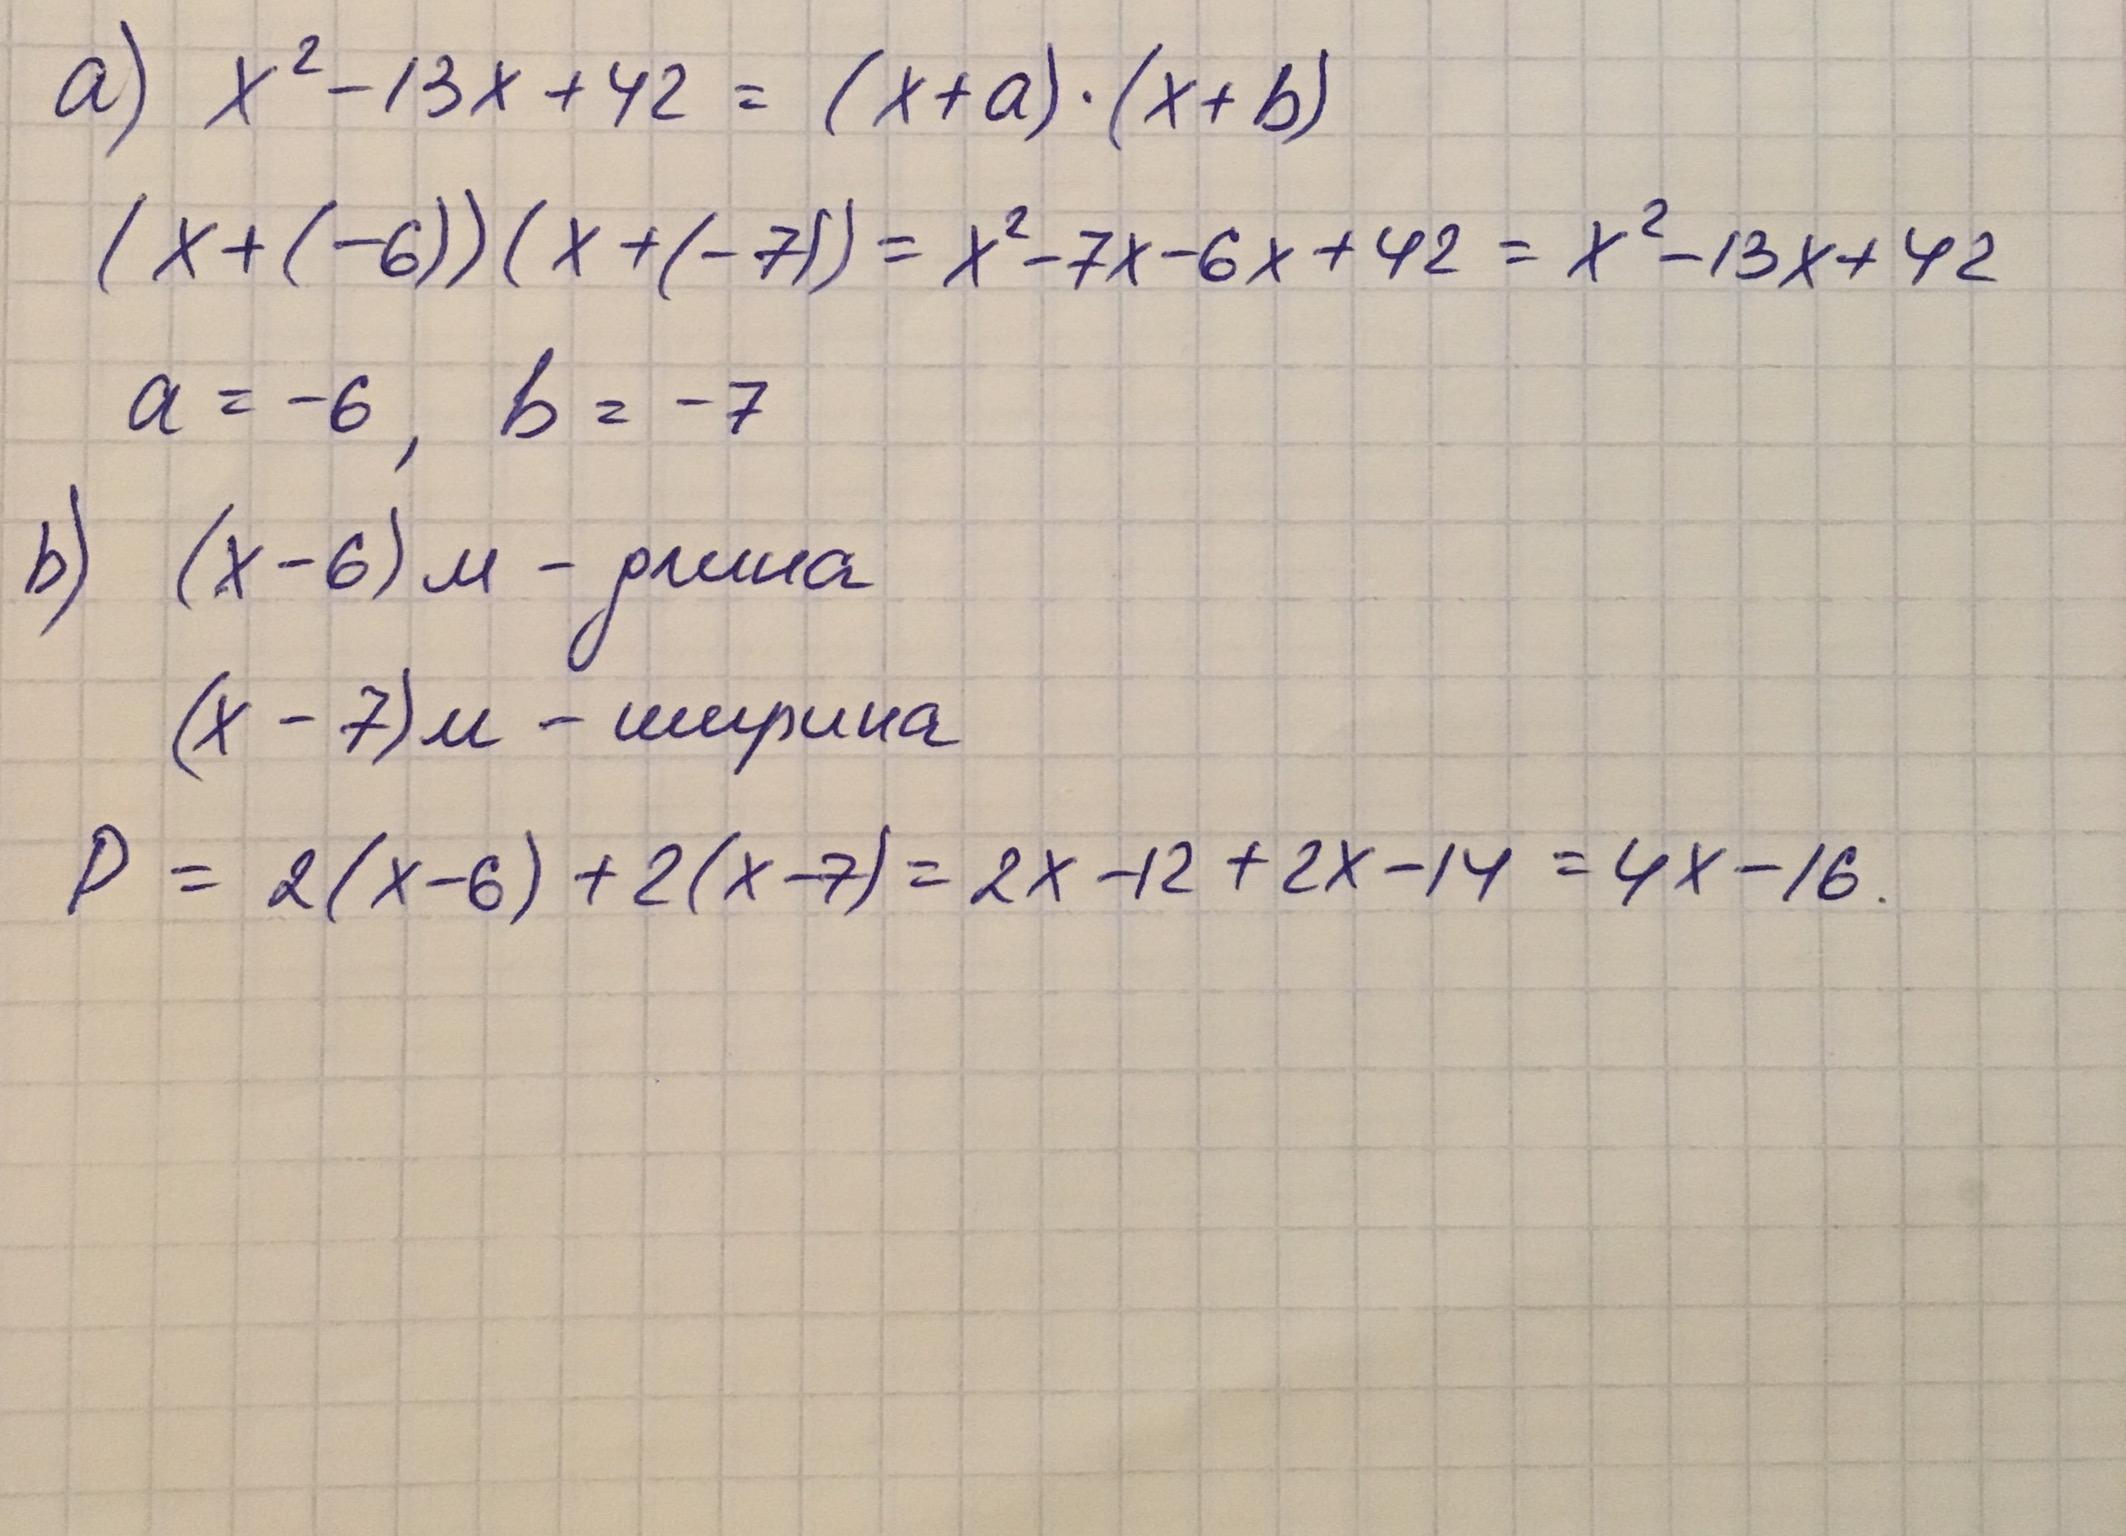 a) x² - 13x + 42 = (x + a) · (x + b)
(x + (-6))(x + (-7)) = x² - 7x - 6x + 42 = x² - 13x + 42
a = -6, b = -7
b) (x - 6) м - длина
(x - 7) м - ширина
P = 2(x - 6) + 2(x - 7) = 2x - 12 + 2x - 14 = 4x - 16.